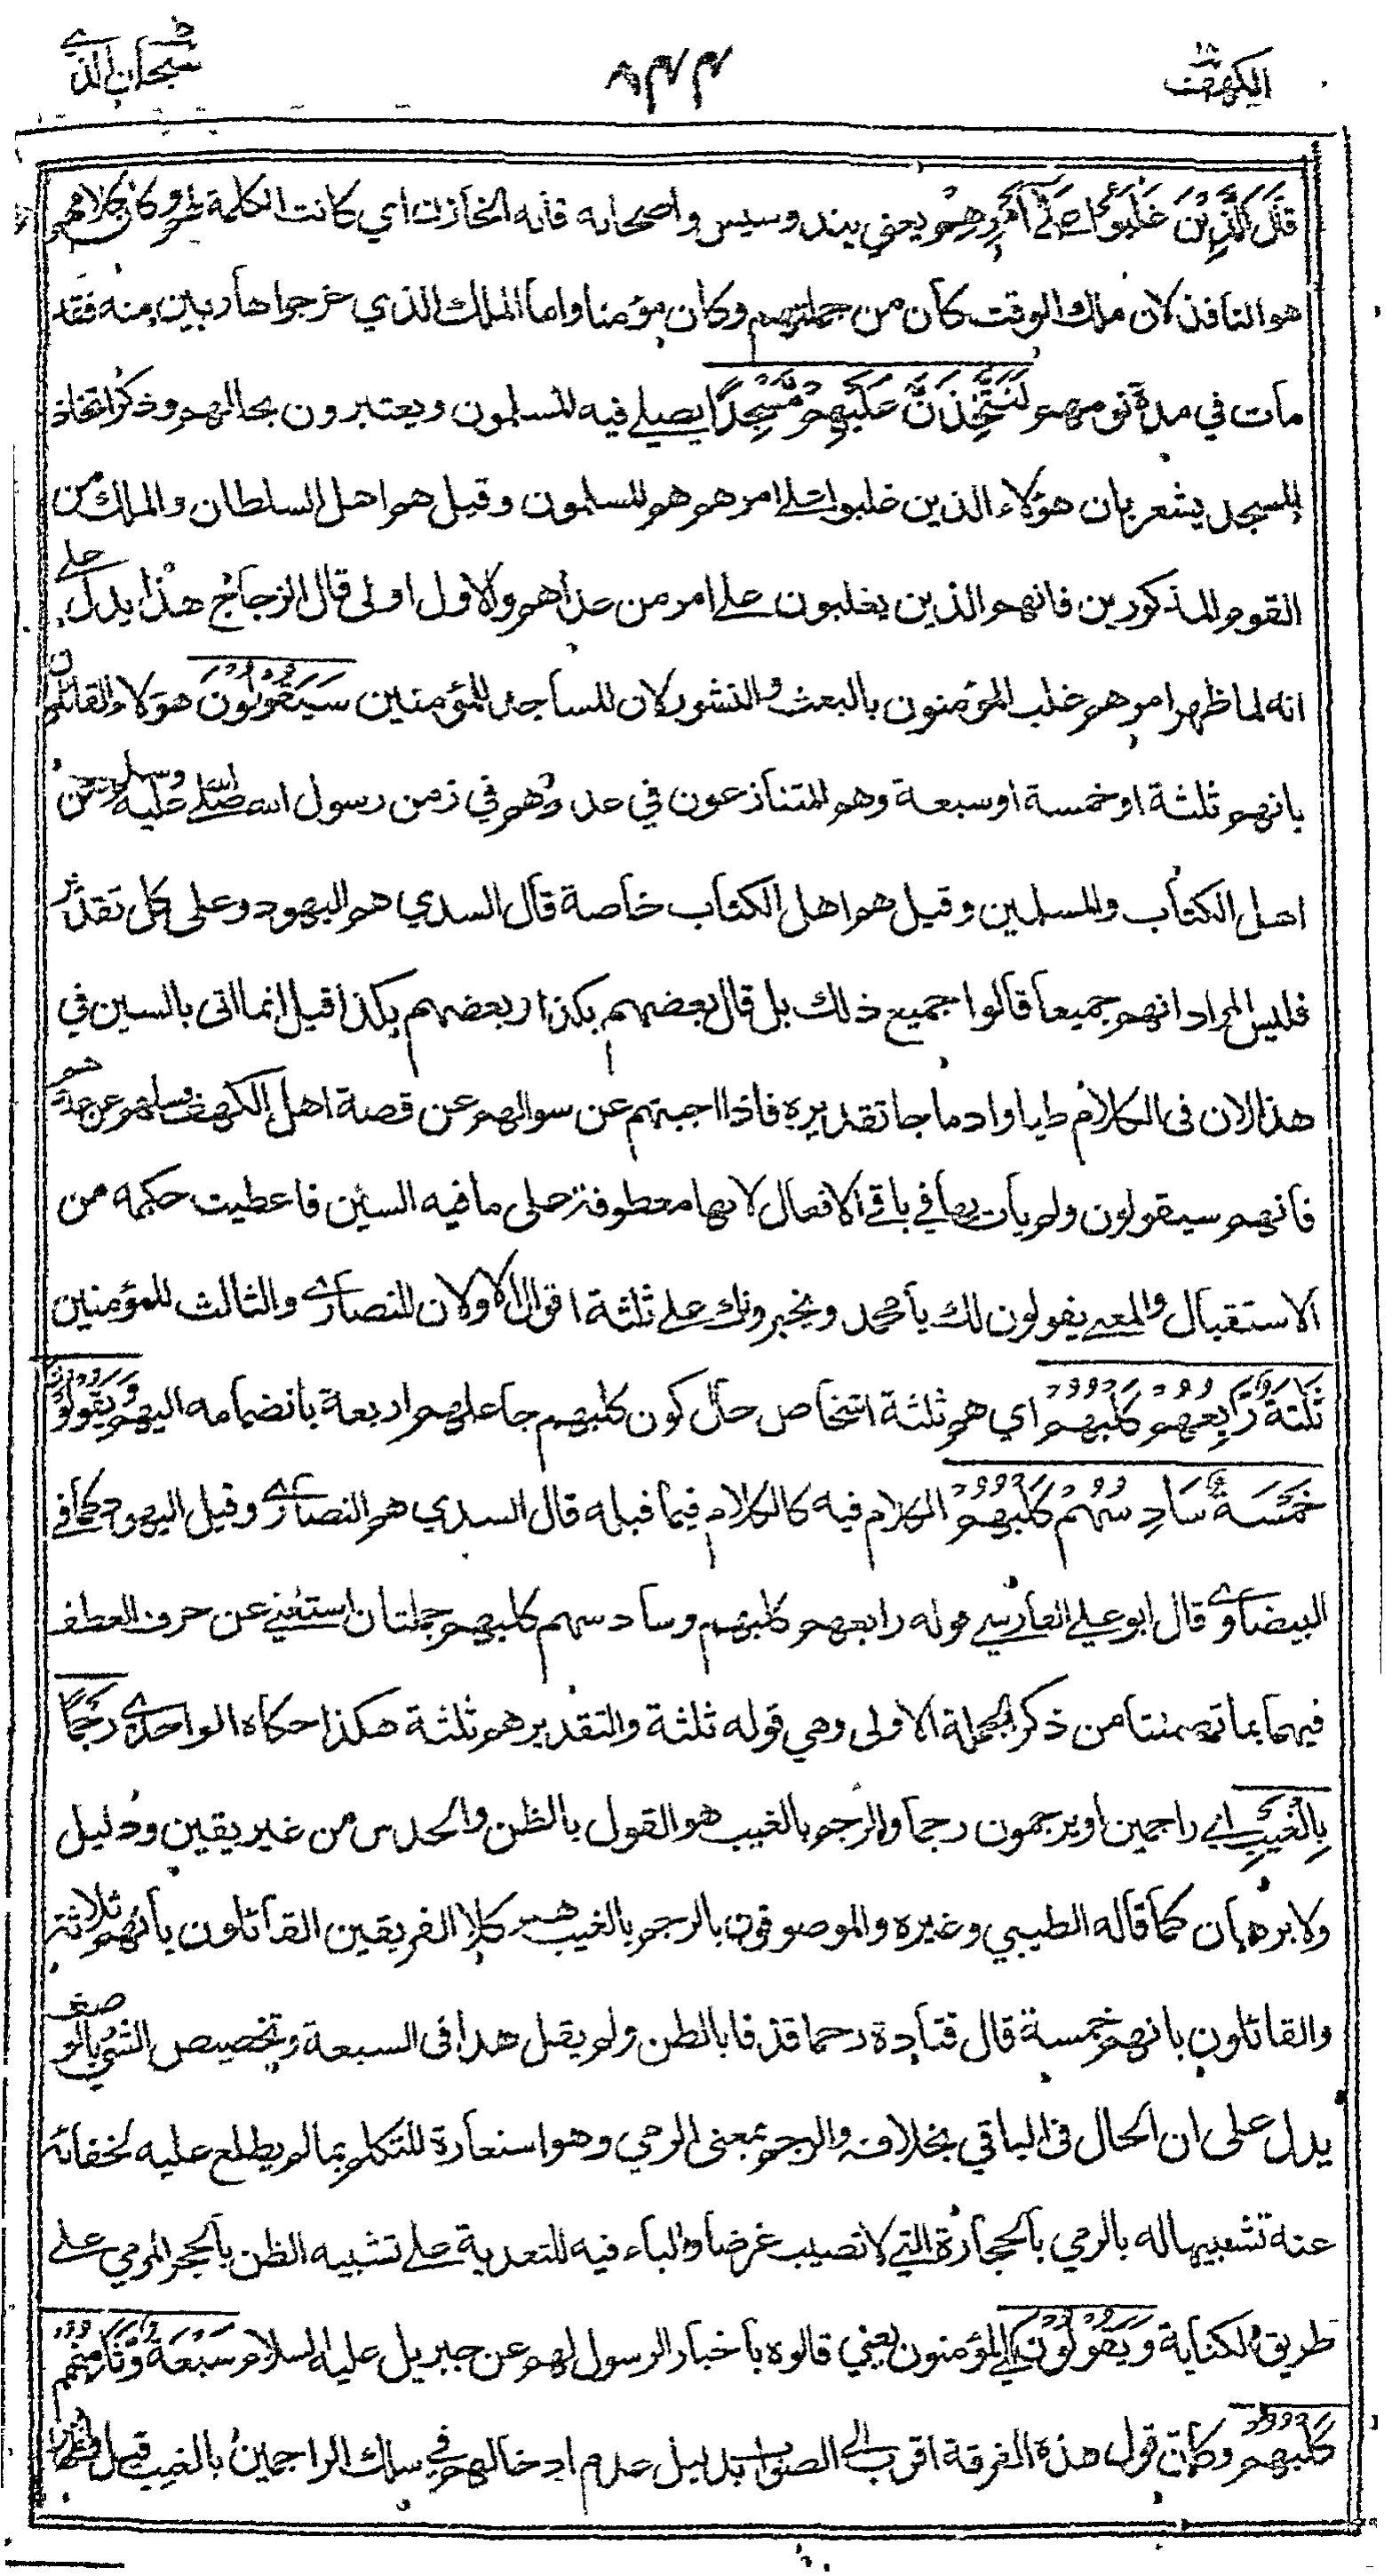 الكهف ١٨
٨٤٤
سبحان الذي
قَالَ الَّذِيْنَ غَلَبُوْا عَلٰٓى اَمْرِهِمْ يعني بيندوسيس واصحابه فانه الخازن اي كانت الكلمة لهم وكان كلامهم
هو النافذ لان ملك الوقت كان من جملتهم وكان مؤمنا واما الملك الذي خرجوا هاربين منه فقد
مات في مدة نومهم لَنَتَّخِذَنَّ عَلَيْهِمْ مَّسْجِدًا يصلي فيه المسلمون ويعتبرون بحالهم وذكر اتخاذ
المسجد يشعر بان هؤلاء الذين غلبوا على امرهم هم المسلمون وقيل هم اهل السلطان والملك من
القوم المذكورين فانهم الذين يغلبون على امر من عداهم والاول اولى قال الزجاج هذا يدل على
انه لما ظهر امرهم غلب المؤمنون بالبعث والنشور لان المساجد للمؤمنين سَيَقُوْلُوْنَ هؤلاء القائلون
بانهم ثلثة او خمسة او سبعة وهم المتنازعون في عددهم في زمن رسول الله صلى الله عليه وسلم من
اهل الكتاب والمسلمين وقيل هم اهل الكتاب خاصة قال السدي هم اليهود وعلى كل تقدير
فليس المراد انهم جميعا قالوا جميع ذلك بل قال بعضهم بكذا وبعضهم بكذا قيل انما اتى بالسين في
هذا لان فى الكلام طيا وادماجا تقديره فاذا اجبتهم عن سوالهم عن قصة اهل الكهف وسلهم عن عددهم
فانهم سيقولون ولم يأت بها في باقي الافعال لانها معطوفة على ما فيه السين فاعطيت حكمه من
الاستقبال والمعنى يقولون لك يا محمد ويخبرونك على ثلثة اقوال الاولان للنصارى والثالث للمؤمنين
ثَلٰثَةٌ رَّابِعُهُمْ كَلْبُهُمْ اي هم ثلثة اشخاص حال كون كلبهم جاعلهم اربعة بانضمامه اليهم وَيَقُوْلُوْنَ
خَمْسَةٌ سَادِسُهُمْ كَلْبُهُمْ الكلام فيه كالكلام فيما قبله قال السدي هم النصارى وقيل اليهود كما في
البيضاوي قال ابو علي الفارسي قوله رابعهم كلبهم وسادسهم كلبهم جملتان استغني عن حرف العطف
فيهما بما تضمنتا من ذكر الجملة الاولى وهي قوله ثلثة والتقدير هم ثلثة هكذا حكاه الواحدي رَجْمًا
بِالْغَيْبِ اي راجمين او يرجمون رجما والرجم بالغيب هو القول بالظن والحدس من غير يقين ودليل
ولا برهان كما قاله الطيبي وغيره والموصوفون بالرجم بالغيب هم كلا الفريقين القائلون بانهم ثلاثة
والقائلون بانهم خمسة قال قتادة رجما قذفا بالظن ولم يقل هذا فى السبعة وتخصيص الشيء بالوصف
يدل على ان الحال فى الباقي بخلافه والرجم بمعنى الرمي وهو استعارة للتكلم بما لم يطلع عليه لخفائه
عنه تشبيها له بالرمي بالحجارة التي لا تصيب غرضا والباء فيه للتعدية على تشبيه الظن بالحجر المرمي على
طريق الكناية وَيَقُوْلُوْنَ اي المؤمنون يعني قالوه باخبار الرسول لهم عن جبريل عليه السلام سَبْعَةٌ وَّثَامِنُهُمْ
كَلْبُهُمْ وكان قول هذه الفرقة اقرب الى الصواب بدليل عدم ادخالهم في سلك الراجمين بالغيب قيل